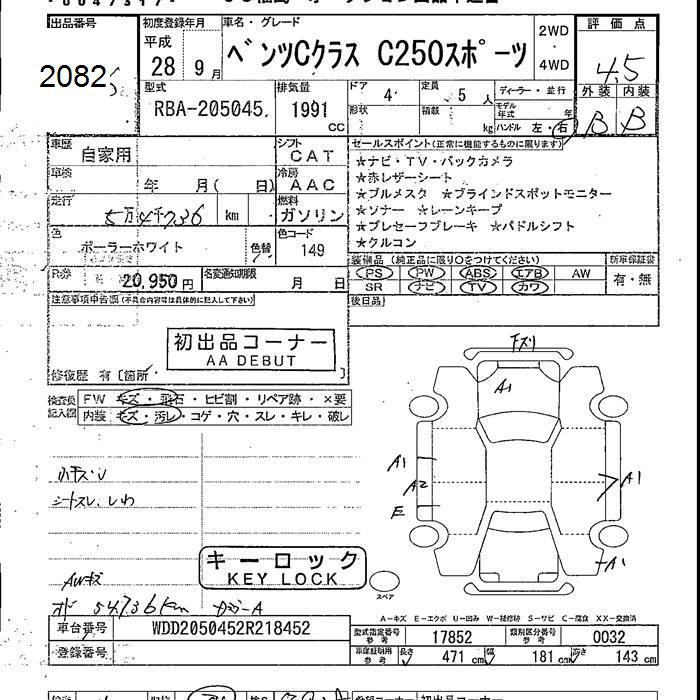 出品番号 初度登録年月 車名・グレード 2WD 評価点
平成 ベンツCクラス C250スポーツ ・
28 9月 4WD 4.5
2082
型式 排気量 ドア 4 定員 5 人 ディーラー・並行 外装 内装
RBA-205045. 1991 cc 形状 積載 kg モデル年式 年 B B
ハンドル 左・右
車歴 自家用 シフト CAT セールスポイント(正常に機能するものに限ります)
車検 年 月( 日) 冷房 AAC ★ナビ・TV・バックカメラ
★赤レザーシート
走行 5万4千736 km 燃料 ガソリン ★プルメスク ★ブラインドスポットモニター
★ソナー ★レーンキープ
色 ポーラーホワイト 色替 色コード 149 ★プレセーフブレーキ ★パドルシフト
★クルコン
R券 20,950円 名変通知期限 月 日 装備品(純正品に限り○をつけてください) 新車保証書
PS PW ABS エアB AW 有・無
SR ナビ TV カワ
注意事項申告欄(不具合内容等は具体的に記入して下さい) 後日品
初出品コーナー
AA DEBUT
修復歴 有〔箇所
検査員記入欄 FW キズ・飛石・ヒビ割・リペア跡・×要
内装 キズ・汚レ・コゲ・穴・スレ・キレ・破レ
下スリ
A1
A1
A2 A1
E
A1
シートスレ、しわ
キーロック
KEY LOCK
スペア
AWキズ
54736km
A-キズ E-エクボ U-凹み W-補修跡 S-サビ C-腐食 XX-交換済
車台番号 WDD2050452R218452 型式指定番号 参考 17852 類別区分番号 参考 0032
登録番号 車庫証明用 参考 長さ 471 cm 幅 181 cm 高さ 143 cm